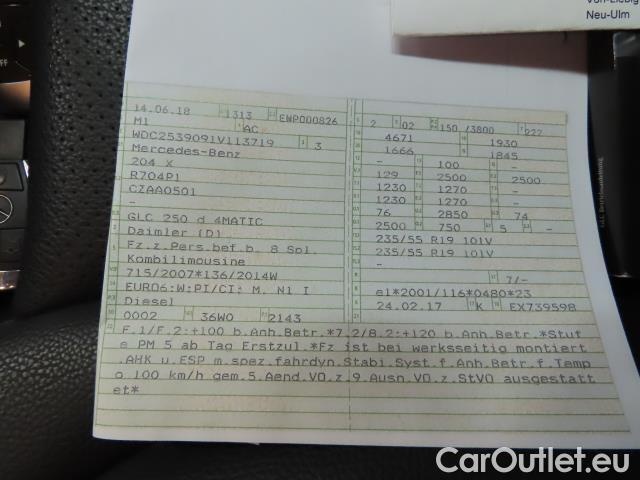 Neu-Ulm
14.06.18 1313 EWP000826
M1 AC
WDC2539091V113719 3
Mercedes-Benz
204 X
R704P1
CZAA0501
-
GLC 250 d 4MATIC
Daimler (D)
Fz.z.Pers.bef.b. 8 Spl.
Kombilimousine
715/2007*136/2014W
EURO6:W:PI/CI: M, N1 I
Diesel
0002 36W0 2143
2 02 150 /3800 222
4671 1930
1666 1845
- 100 -
129 2500 2500
1230 1270 -
1230 1270 -
76 2850 74
2500 750 5 -
235/55 R19 101V
235/55 R19 101V
-
7/-
e1*2001/116*0480*23
24.02.17 K EX739598
F.1/F.2:+100 b.Anh.Betr.*7.2/8.2:+120 b.Anh.Betr.*Stuf
e PM 5 ab Tag Erstzul.*Fz ist bei werksseitig montiert
.AHK u.ESP m.spez.fahrdyn.Stabi.Syst.f.Anh.Betr.f.Temp
o 100 km/h gem.5.Aend.VO.z.9.Ausn.VO.z.StVO ausgestatt
et*
CarOutlet.eu